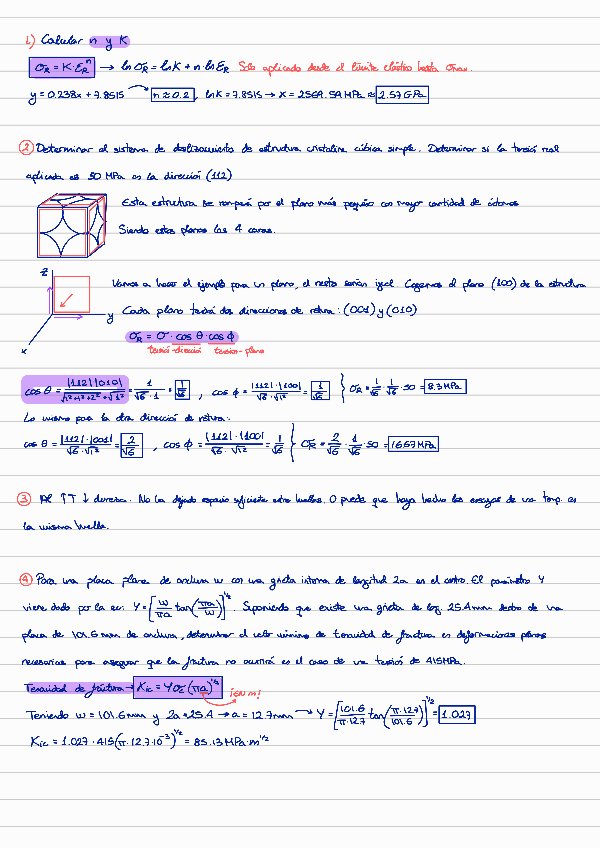 1) Calcular n y K
σR = K·εR^n → ln σR = ln K + n·ln εR Solo aplicado desde el límite elástico hasta σmax.
y = 0.238x + 7.8515 → n ≈ 0.2, ln K = 7.8515 → K = 2569.59 MPa ≈ 2.57 GPa
② Determinar el sistema de deslizamiento de estructura cristalina cúbica simple. Determinar si la tensión real
aplicada es 50 MPa en la dirección (112)
Esta estructura se romperá por el plano más pequeño con mayor cantidad de átomos
Siendo estos planos las 4 caras.
Z
y
x
Vamos a hacer el ejemplo para un plano, el resto serían igual. Cogemos el plano (100) de la estructura
Cada plano tendrá dos direcciones de rotura: (001) y (010)
σR = σ · cos θ · cos ϕ
tensión-dirección tensión-plano
cos θ = |112|·|010| / √(1²+1²+2²)·√1² = 1/(√6·1) = 1/√6 , cos ϕ = |112|·|100| / (√6·√1²) = 1/√6 } σR = 1/√6 · 1/√6 · 50 = 8.3 MPa
Lo mismo para la otra dirección de rotura:
cos θ = |112|·|001| / (√6·√1²) = 2/√6 , cos ϕ = |112|·|100| / (√6·√1²) = 1/√6 } σR = 2/√6 · 1/√6 · 50 = 16.67 MPa
③ Al ↑↑ ↓ dureza. No ha dejado espacio suficiente entre huellas. O puede que haya hecho los ensayos de una temp. en
la misma huella.
④ Para una placa plana de anchura w con una grieta interna de longitud 2a en el centro. El parámetro Y
viene dado por la ec: Y = [w/πa tan(πa/w)]^1/2. Suponiendo que existe una grieta de long. 25.4 mm dentro de una
placa de 101.6 mm de anchura, determinar el valor mínimo de tenacidad de fractura en deformaciones planas
necesarias para asegurar que la fractura no ocurrirá en el caso de una tensión de 415 MPa.
Tenacidad de fractura → KIC = Yσc(πa)^1/2 ¡en m!
Teniendo w = 101.6 mm y 2a = 25.4 → a = 12.7 mm → Y = [101.6/π·12.7 tan(π·12.7/101.6)]^1/2 = 1.027
KIC = 1.027 · 415(π·12.7·10^-3)^1/2 = 85.13 MPa·m^1/2